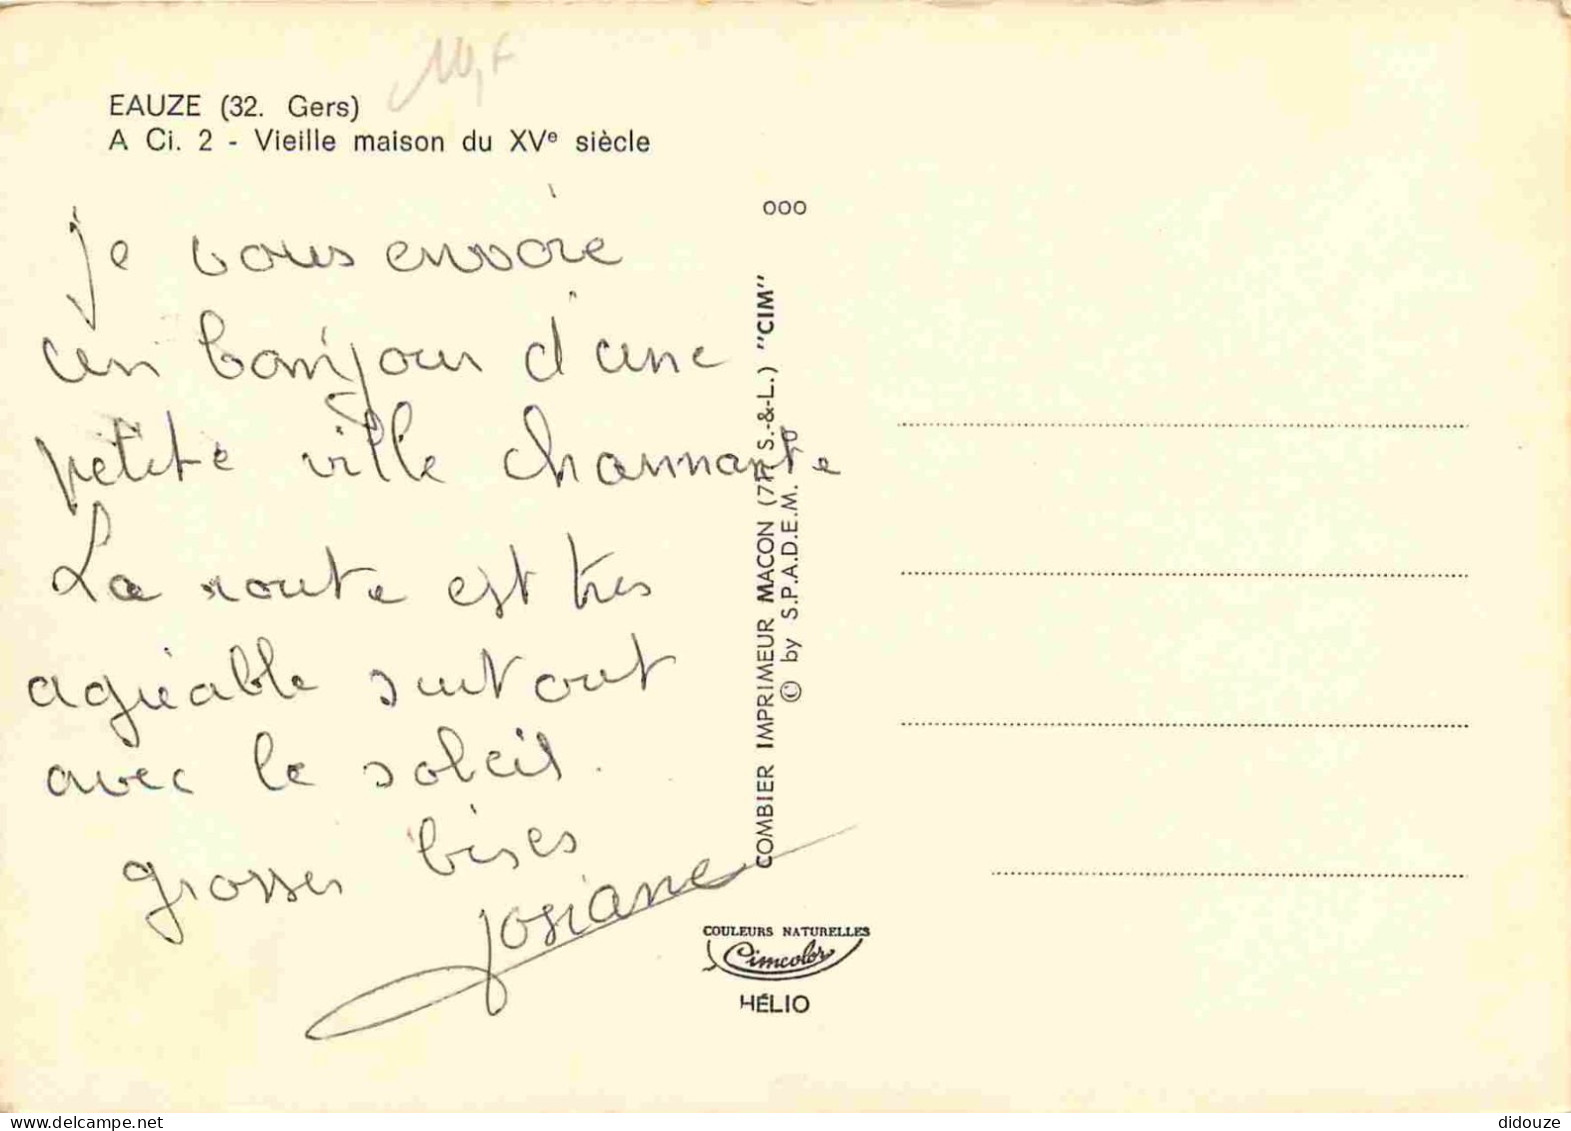 10,F
EAUZE (32. Gers)
A Ci. 2 - Vieille maison du XVe siècle
je vous envoie
un bonjour d'une
petite ville charmante
La route est très
agréable surtout
avec le soleil.
grosses bises
Josiane
OOO
COMBIER IMPRIMEUR MACON (71 S.-&-L.) "CIM"
© by S.P.A.D.E.M.
COULEURS NATURELLES
Cimcolor
HÉLIO
delcampe.net
didouze